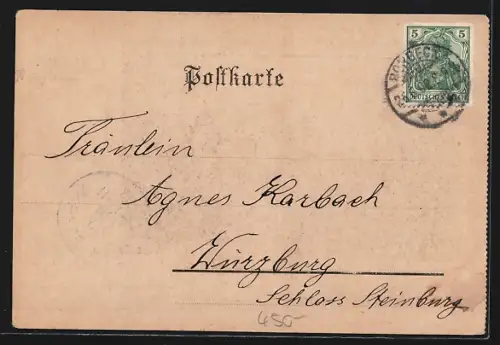 5 5
Postkarte
Fräulein
Agnes Karbach
Würzburg
Schloss Steinburg
450-